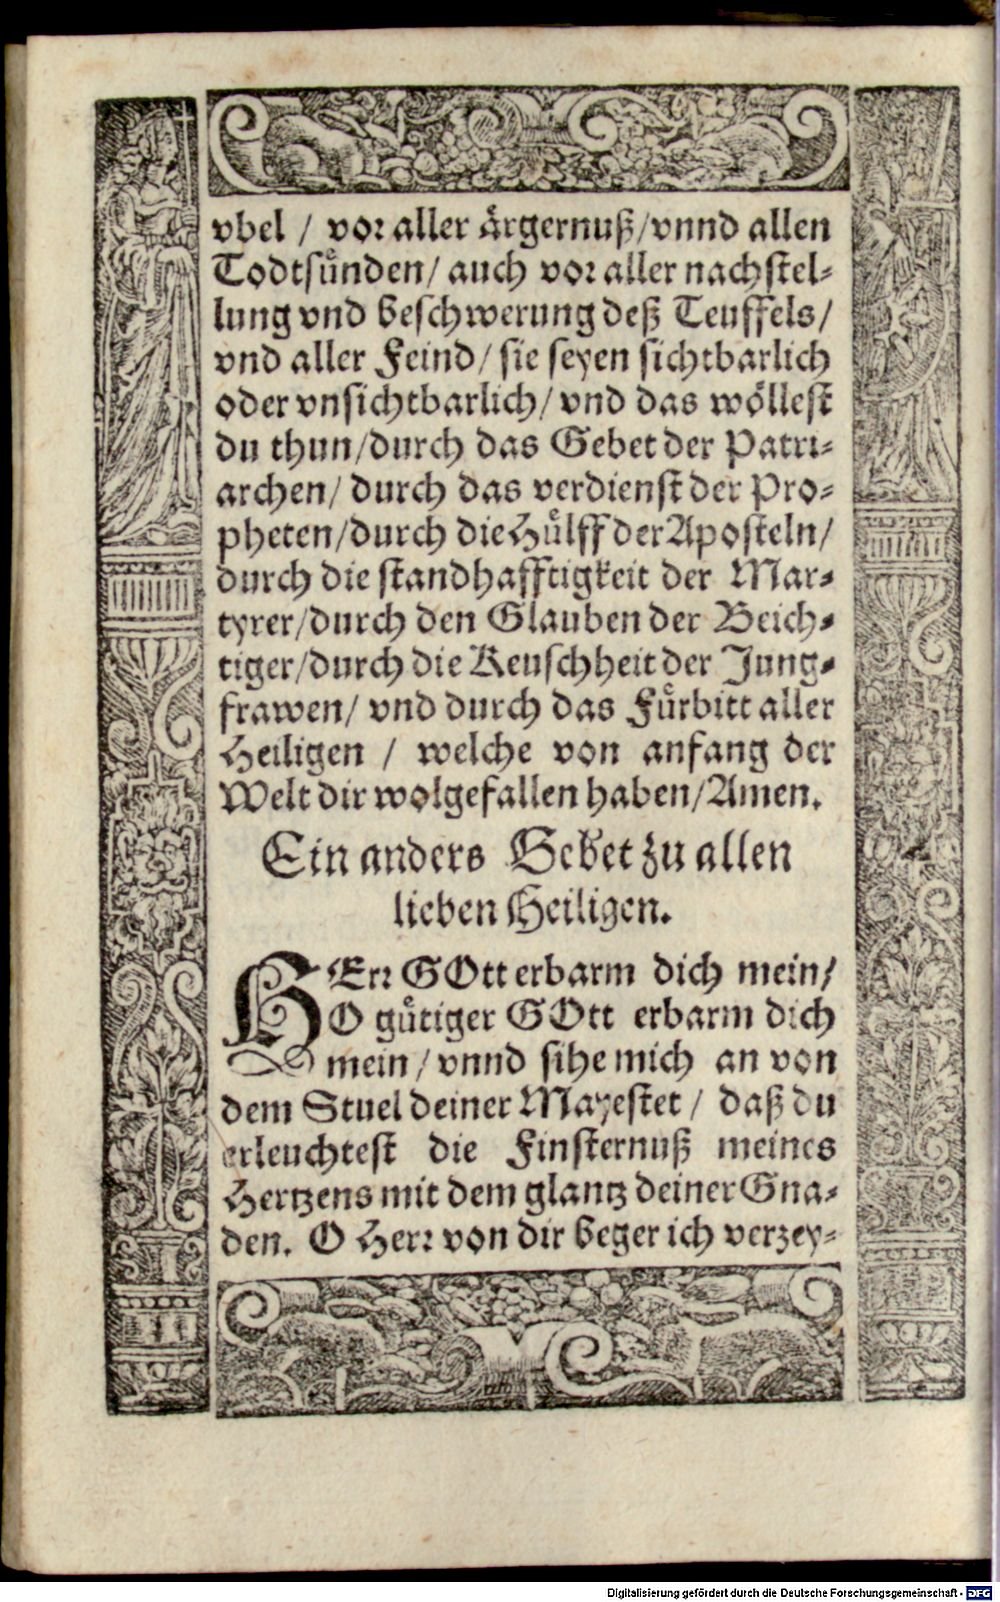 vbel / vor aller ärgernuß/vnnd allen
Todtsünden/ auch vor aller nachstel-
lung vnd beschwerung deß Teuffels/
vnd aller Feind/ sie seyen sichtbarlich
oder vnsichtbarlich/ vnd das wöllest
du thun/durch das Gebet der Patri-
archen/ durch das verdienst der Pro-
pheten/durch die Hülff der Aposteln/
durch die standhafftigkeit der Mar-
tyrer/durch den Glauben der Beich-
tiger/durch die Keuschheit der Jung-
frawen/ vnd durch das Fürbitt aller
Heiligen / welche von anfang der
Welt dir wolgefallen haben/Amen.
Ein anders Gebet zu allen
lieben Heiligen.
HErr GOtt erbarm dich mein/
O gütiger GOtt erbarm dich
mein / vnnd sihe mich an von
dem Stuel deiner Mayestet / daß du
erleuchtest die Finsternuß meines
Hertzens mit dem glantz deiner Gna-
den. O Herr von dir beger ich verzey-
Digitalisierung gefördert durch die Deutsche Forschungsgemeinschaft - DFG